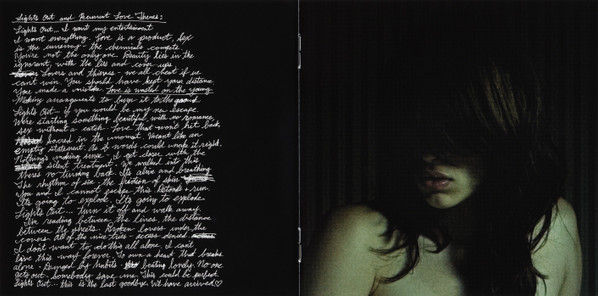 Lights Out and Permanent Love Themes:
Lights Out... I want my entertainment
I want everything. Love is a product, sex
is the unseeing - the chemicals compete.
You're not the only one. Beauty lies in the
ignorant, with the lies and cover ups.
Lovers and thieves - we all cheat if we
can't win. You should have kept your distance.
You made a mistake. Love is wasted on the young.
Making arrangements to bury it to the
Lights Out - if you would be my new escape.
Were starting something beautiful with no romance,
sex without a catch. Love that won't hit back.
forced in the moment. Vacant like an
empty statement. As if words could work it right.
Nothing's making sense. I get closer with the
silent treatment. We walked into this
There's no turning back. It's alive and breathing
The rhythm of sex, the friction of skin
You and I cannot escape this. Detonate & run.
It's going to explode. It's going to explode.
Lights Out... turn it off and walk away.
I'm reading between the lines, the distance
between the sheets. Broken lovers under the
covers. All of the nice tries - access denied.
I don't want to do this all alone. I can't
live this way forever. To own a heart that breaks
alone - Damaged by habits - beating lonely. No one
gets out - somebody save me. This could be perfect.
Lights Out... this is the last goodbye. We have arrived